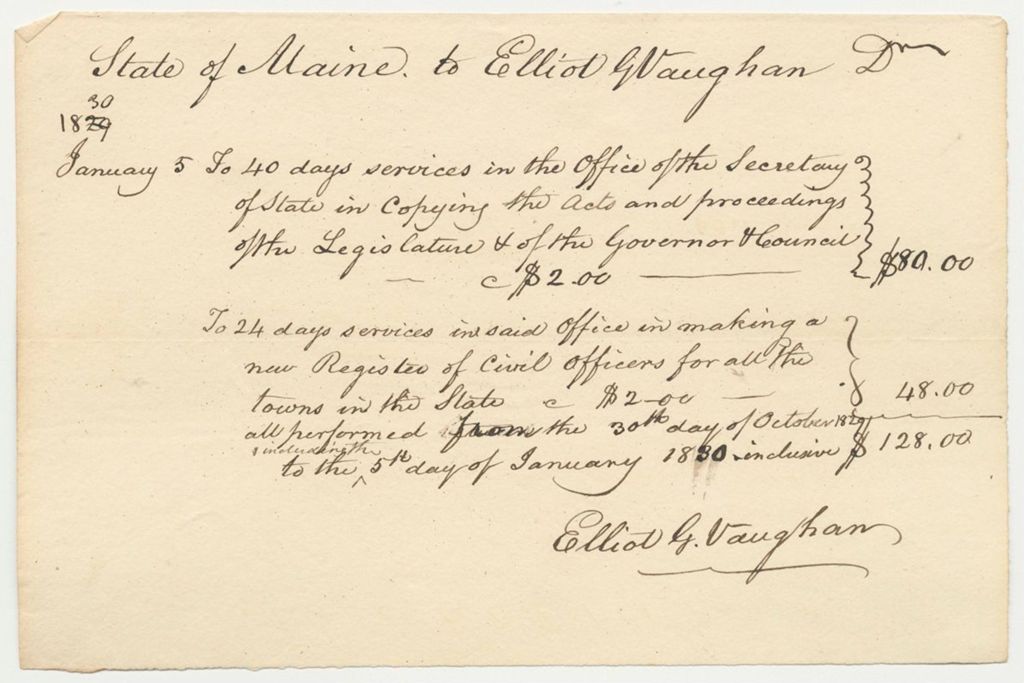 State of Maine. to Elliot G Vaughan Dr
30
1829
January 5 To 40 days services in the Office of the Secretary
of State in Copying the Acts and proceedings
of the Legislature & of the Governor & Council
c $2.00 $80.00
To 24 days services in said Office in making a
new Register of Civil Officers for all the
towns in the State c $2-00 48.00
all performed from the 30th day of October 1829
including the
to the 5th day of January 1830 inclusive $128.00
Elliot G. Vaughan